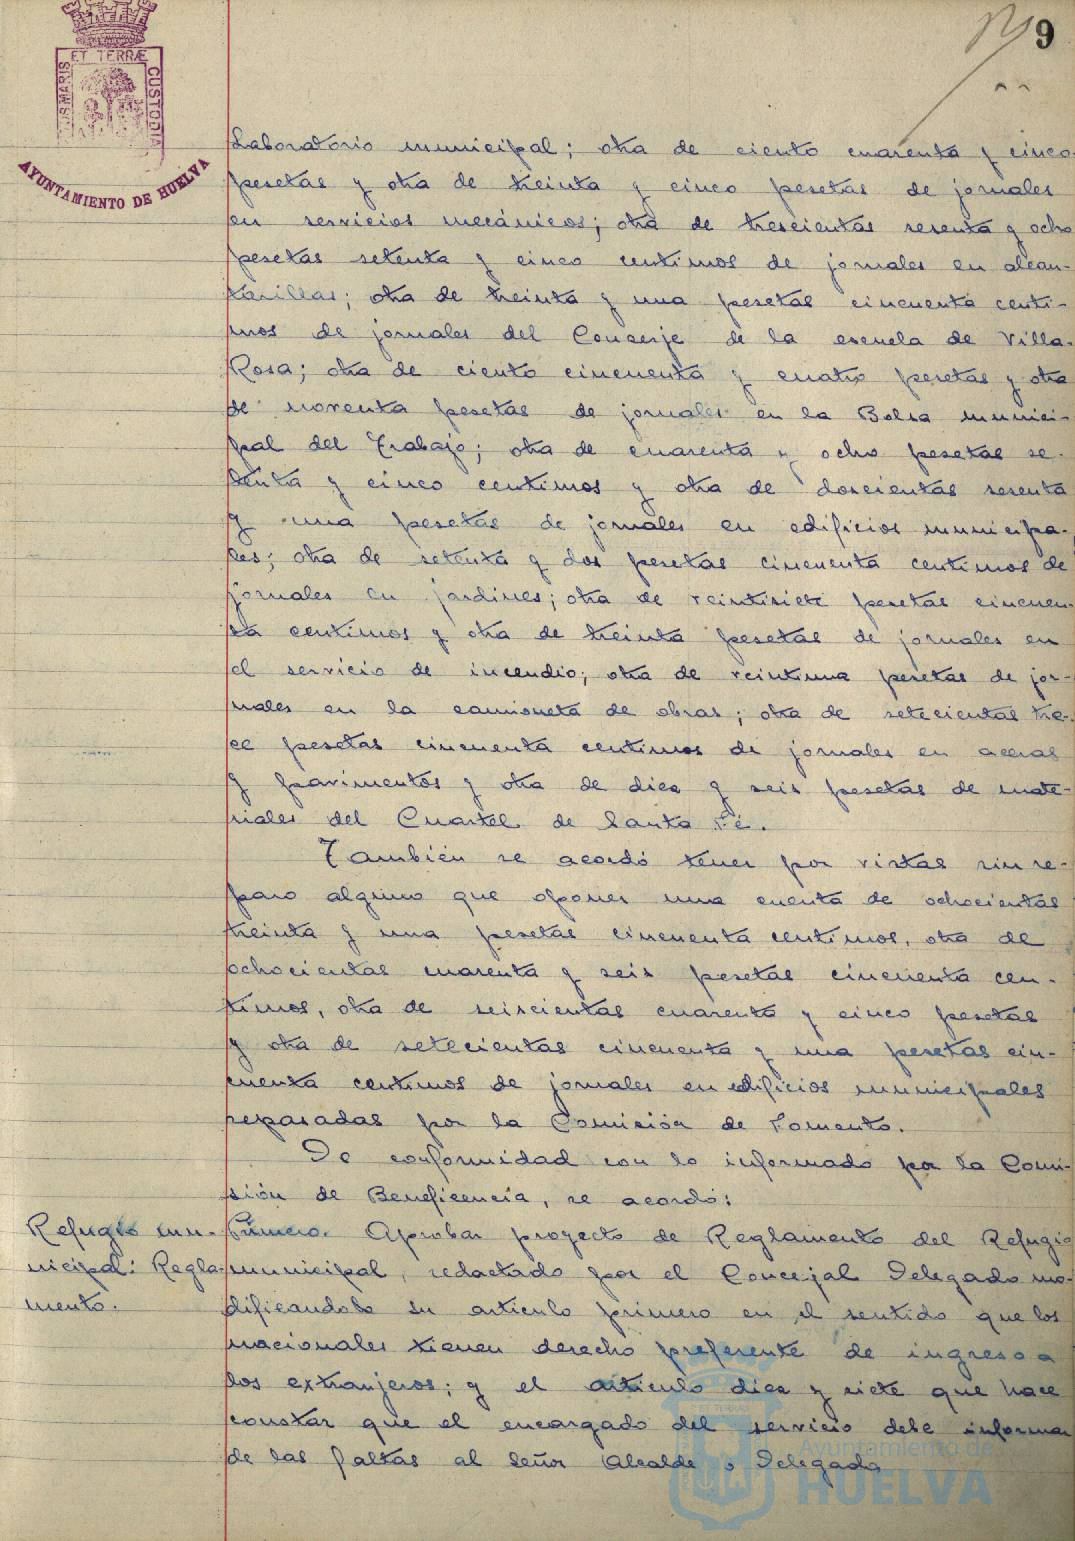 9
ET TERRÆ
CUSTODIA
US MARIS
AYUNTAMIENTO DE HUELVA
Laboratorio municipal; otra de ciento cuarenta y cinco
pesetas y otra de treinta y cinco pesetas de jornales
en servicios mecánicos; otra de trescientas sesenta y ocho
pesetas setenta y cinco centimos de jornales en alcan-
tarillas; otra de treinta y una pesetas cincuenta centi-
mos de jornales del Conserje de la escuela de Villa-
Rosa; otra de ciento cincuenta y cuatro pesetas y otra
de noventa pesetas de jornales en la Bolsa munici-
pal del Trabajo; otra de cuarenta y ocho pesetas se-
tenta y cinco centimos y otra de doscientas sesenta
y una pesetas de jornales en edificios municipa-
les; otra de setenta y dos pesetas cincuenta centimos de
jornales en jardines; otra de veintisiete pesetas cincuen-
ta centimos y otra de treinta pesetas de jornales en
el servicio de incendio; otra de veintiuna pesetas de jor-
nales en la camioneta de obras; otra de setecientas tre-
ce pesetas cincuenta centimos de jornales en aceras
y pavimentos y otra de diez y seis pesetas de mate-
riales del Cuartel de Santa Fé.
También se acordó tener por vistas sin re-
paro alguno que oponer una cuenta de ochocientas
treinta y una pesetas cincuenta centimos, otra de
ochocientas cuarenta y seis pesetas cincuenta cen-
timos, otra de seiscientas cuarenta y cinco pesetas
y otra de setecientas cincuenta y una pesetas cin-
cuenta centimos de jornales en edificios municipales
repasadas por la Comisión de Fomento.
De conformidad con lo informado por la Comi-
sión de Beneficencia, se acordó:
Refugio mu-
nicipal: Regla-
mento.
Primero. Aprobar proyecto de Reglamento del Refugio
municipal, redactado por el Concejal Delegado mo-
dificandose su articulo primero en el sentido que los
nacionales tienen derecho preferente de ingreso a
los extranjeros; y el articulo diez y siete que hace
constar que el encargado del servicio debe informar
de las faltas al Señor Alcalde o Delegado
Ayuntamiento de
HUELVA